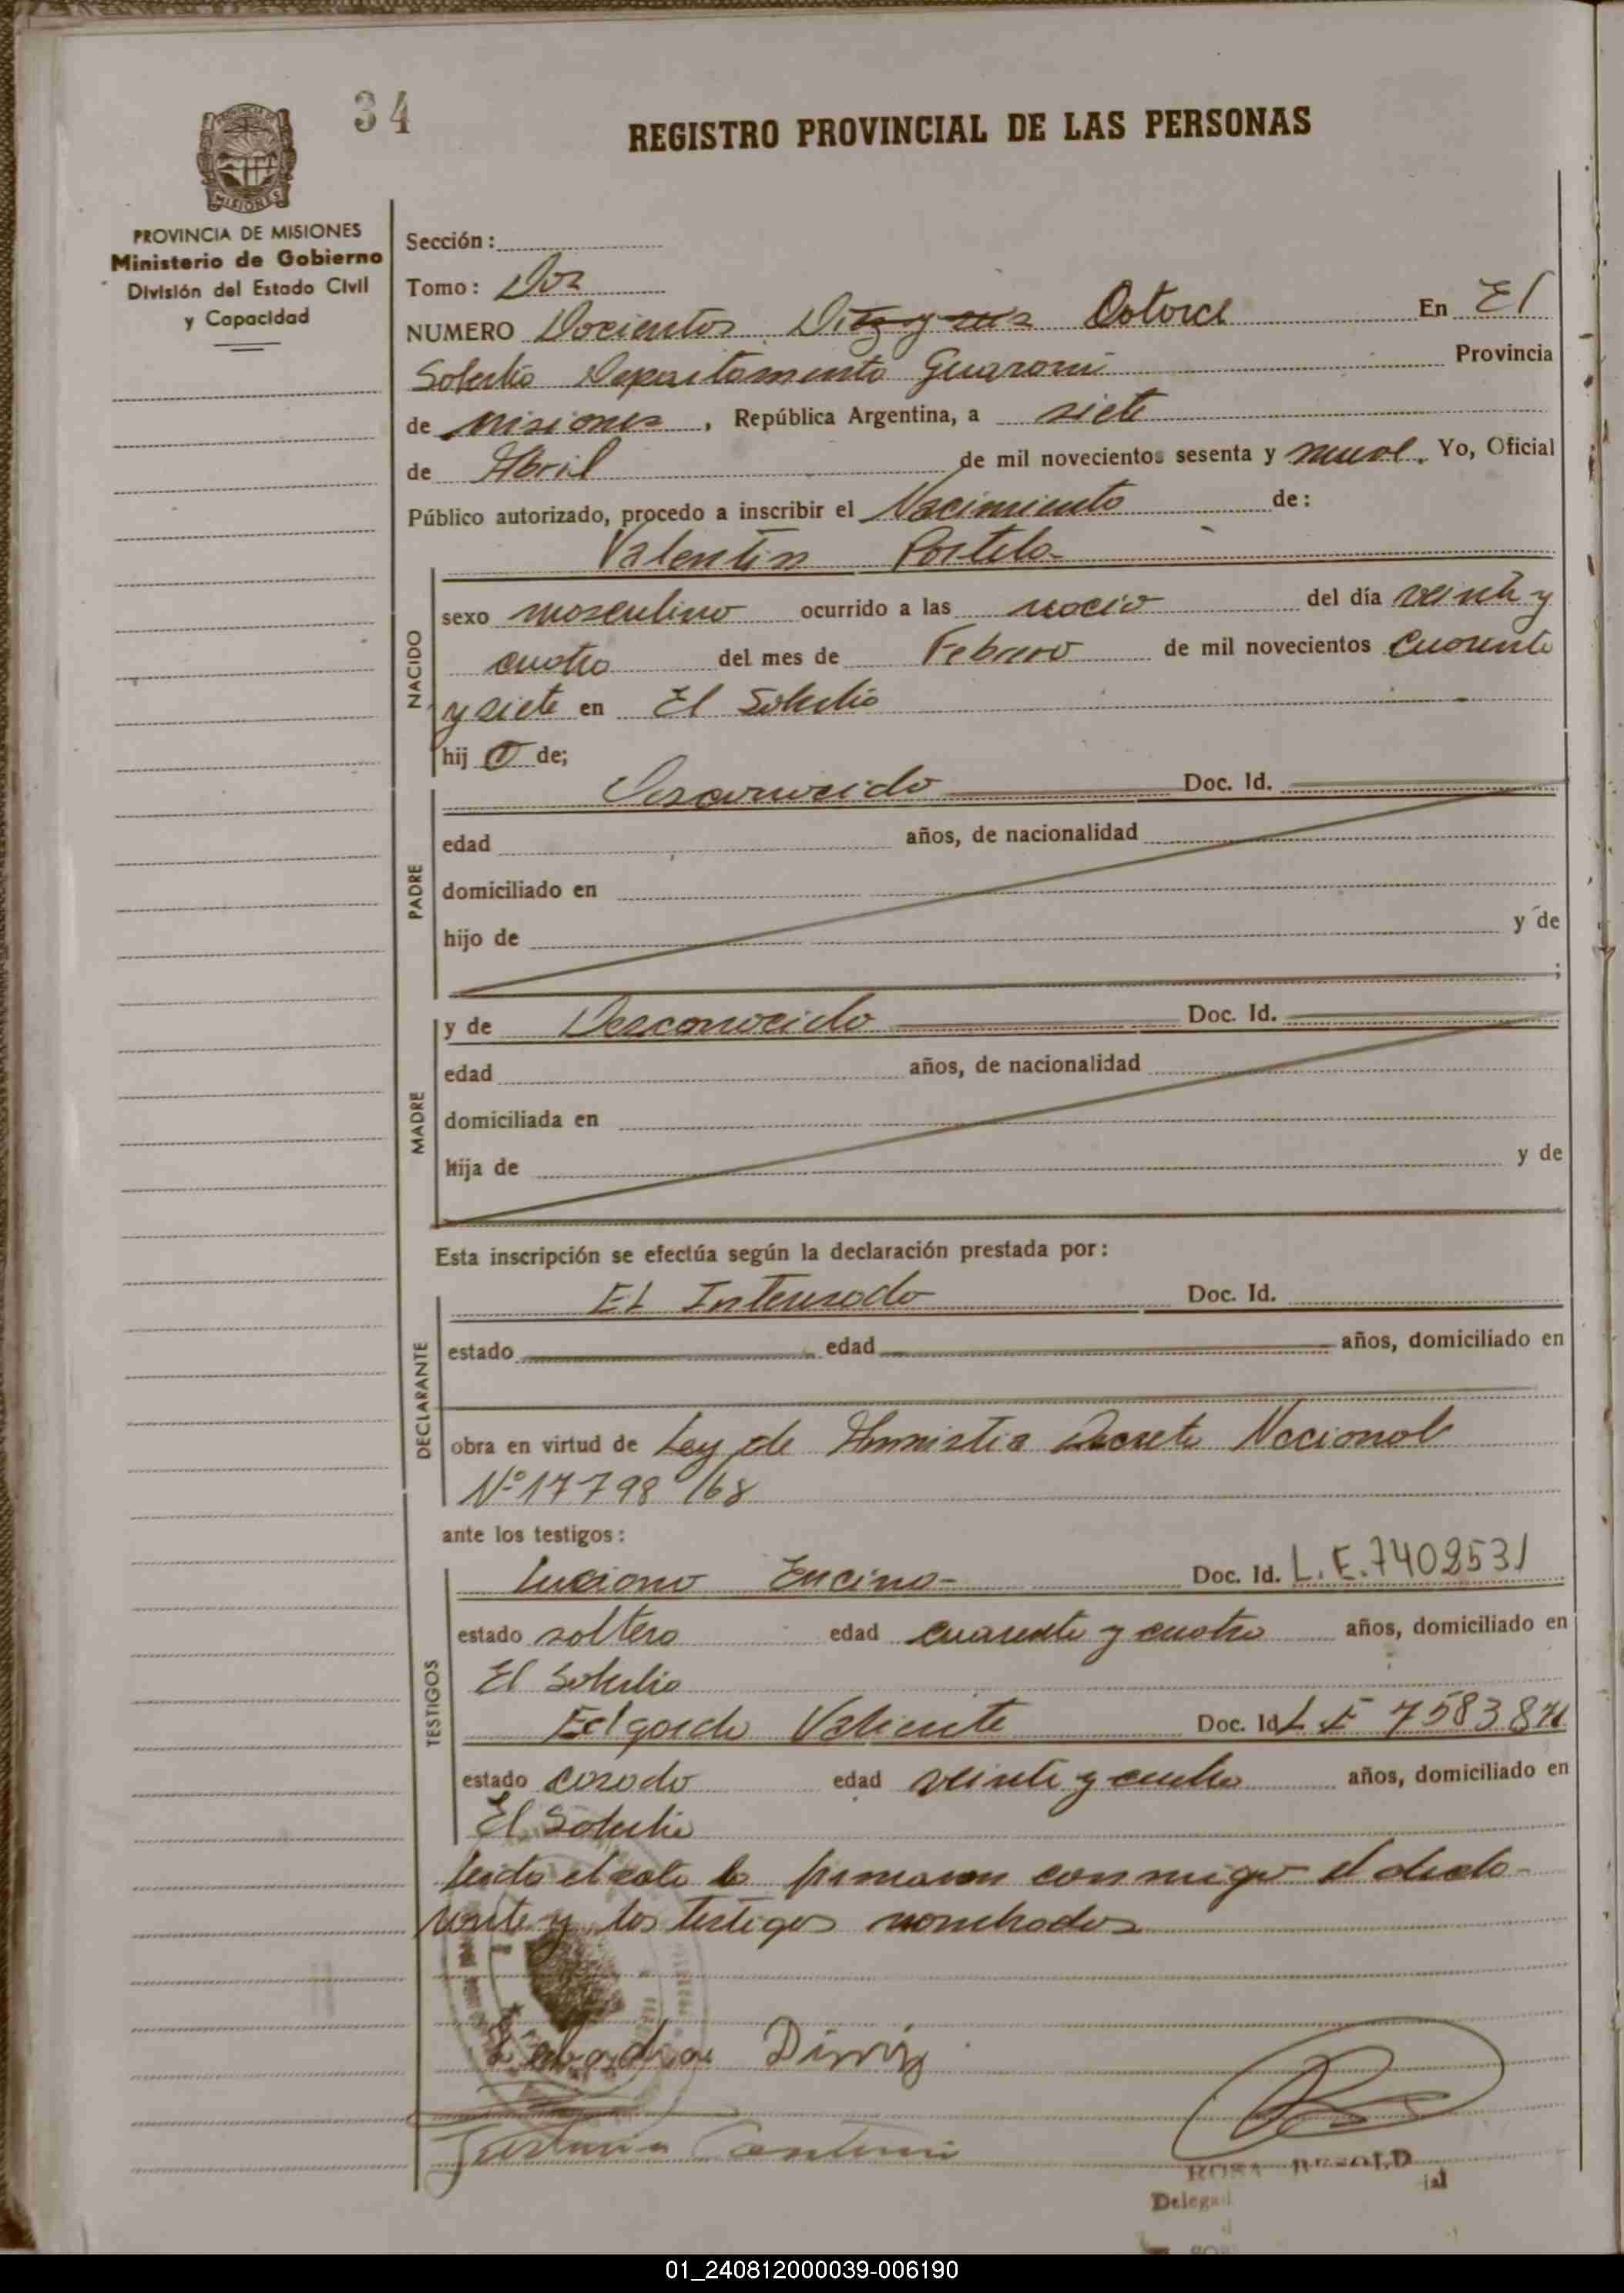 34
REGISTRO PROVINCIAL DE LAS PERSONAS
MISIONES
PROVINCIA DE MISIONES
Ministerio de Gobierno
División del Estado Civil
y Capacidad
Sección:
Tomo: Dos
NUMERO Docientos Catorce En El
Soberbio Departamento Guarani Provincia
de Misiones, República Argentina, a siete
de Abril de mil novecientos sesenta y nueve. Yo, Oficial
Público autorizado, procedo a inscribir el Nacimiento de:
Valentin Portela
NACIDO
sexo masculino ocurrido a las nació del día veinte y
cuatro del mes de Febrero de mil novecientos Cuarenta
y siete en El Soberbio
hij o de;
PADRE
Desconocido Doc. Id.
edad años, de nacionalidad
domiciliado en
hijo de y de
;
MADRE
y de Desconocido Doc. Id.
edad años, de nacionalidad
domiciliada en
hija de y de
Esta inscripción se efectúa según la declaración prestada por:
DECLARANTE
El Interesado Doc. Id.
estado edad años, domiciliado en
obra en virtud de Ley de Amnistia Decreto Nacional
Nº 17798/68
ante los testigos:
TESTIGOS
Luciano Encina Doc. Id. L.E. 7409531
estado soltero edad cuarenta y cuatro años, domiciliado en
El Soberbio
Edgardo Valiente Doc. Id L E 758387
estado casado edad veinte y años, domiciliado en
El Soberbio
leida el acta la firmaron conmigo el decla
rante y los testigos nombrados
ROSA
Delega
01_240812000039-006190